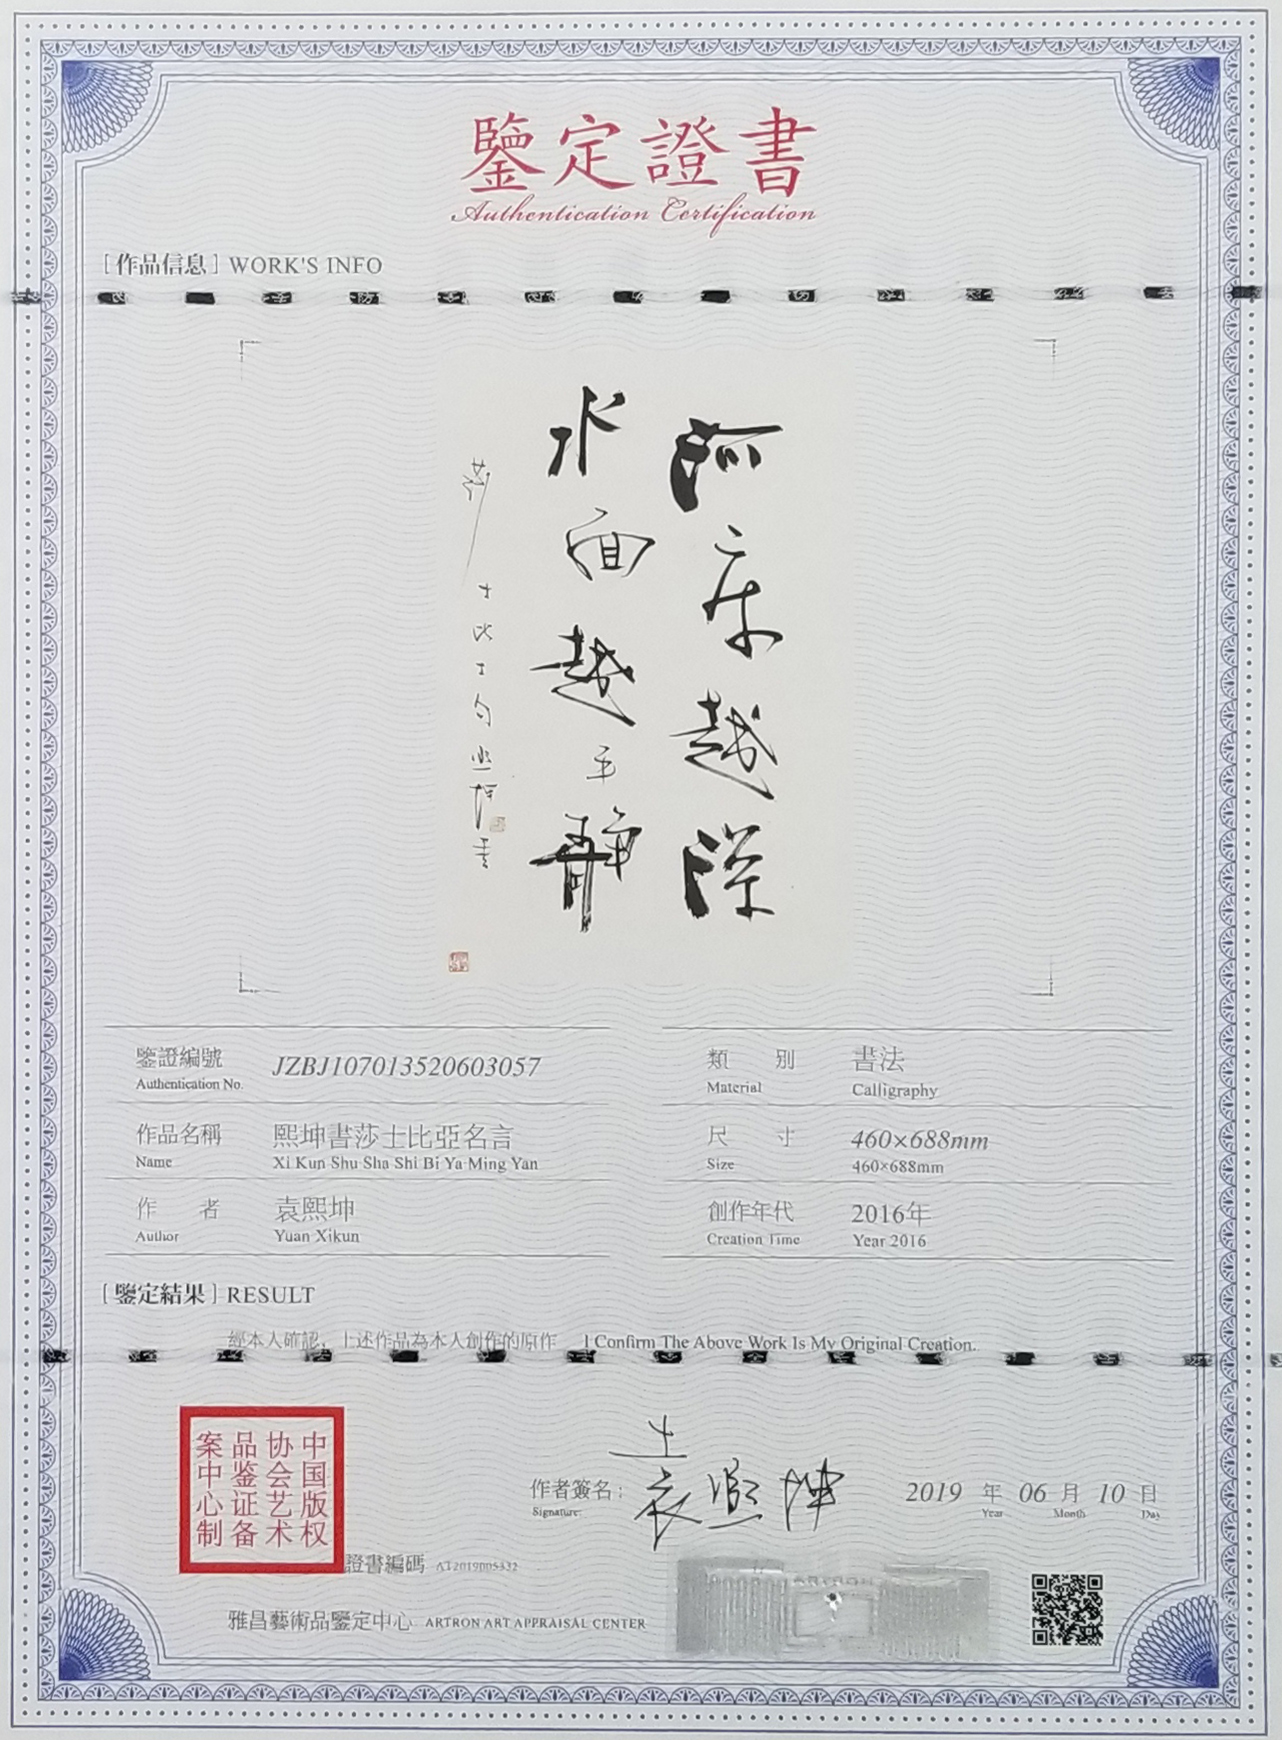 鑒定證書
Authentication Certification
[作品信息] WORK'S INFO
河床越深
水面越平靜
莎士比亞句 熙坤書
鑒證編號 JZBJ107013520603057
Authentication No.
類別 書法
Material Calligraphy
作品名稱 熙坤書莎士比亞名言
Name Xi Kun Shu Sha Shi Bi Ya Ming Yan
尺寸 460×688mm
Size 460×688mm
作者 袁熙坤
Author Yuan Xikun
創作年代 2016年
Creation Time Year 2016
[鑒定結果] RESULT
經本人確認，上述作品為本人創作的原作 I Confirm The Above Work Is My Original Creation.
中国版权
协会艺术
品鉴证备
案中心制
作者簽名： 袁熙坤 2019 年 06 月 10 日
Signature: Year Month Day
證書編碼 AT2019005332
雅昌藝術品鑒定中心 ARTRON ART APPRAISAL CENTER